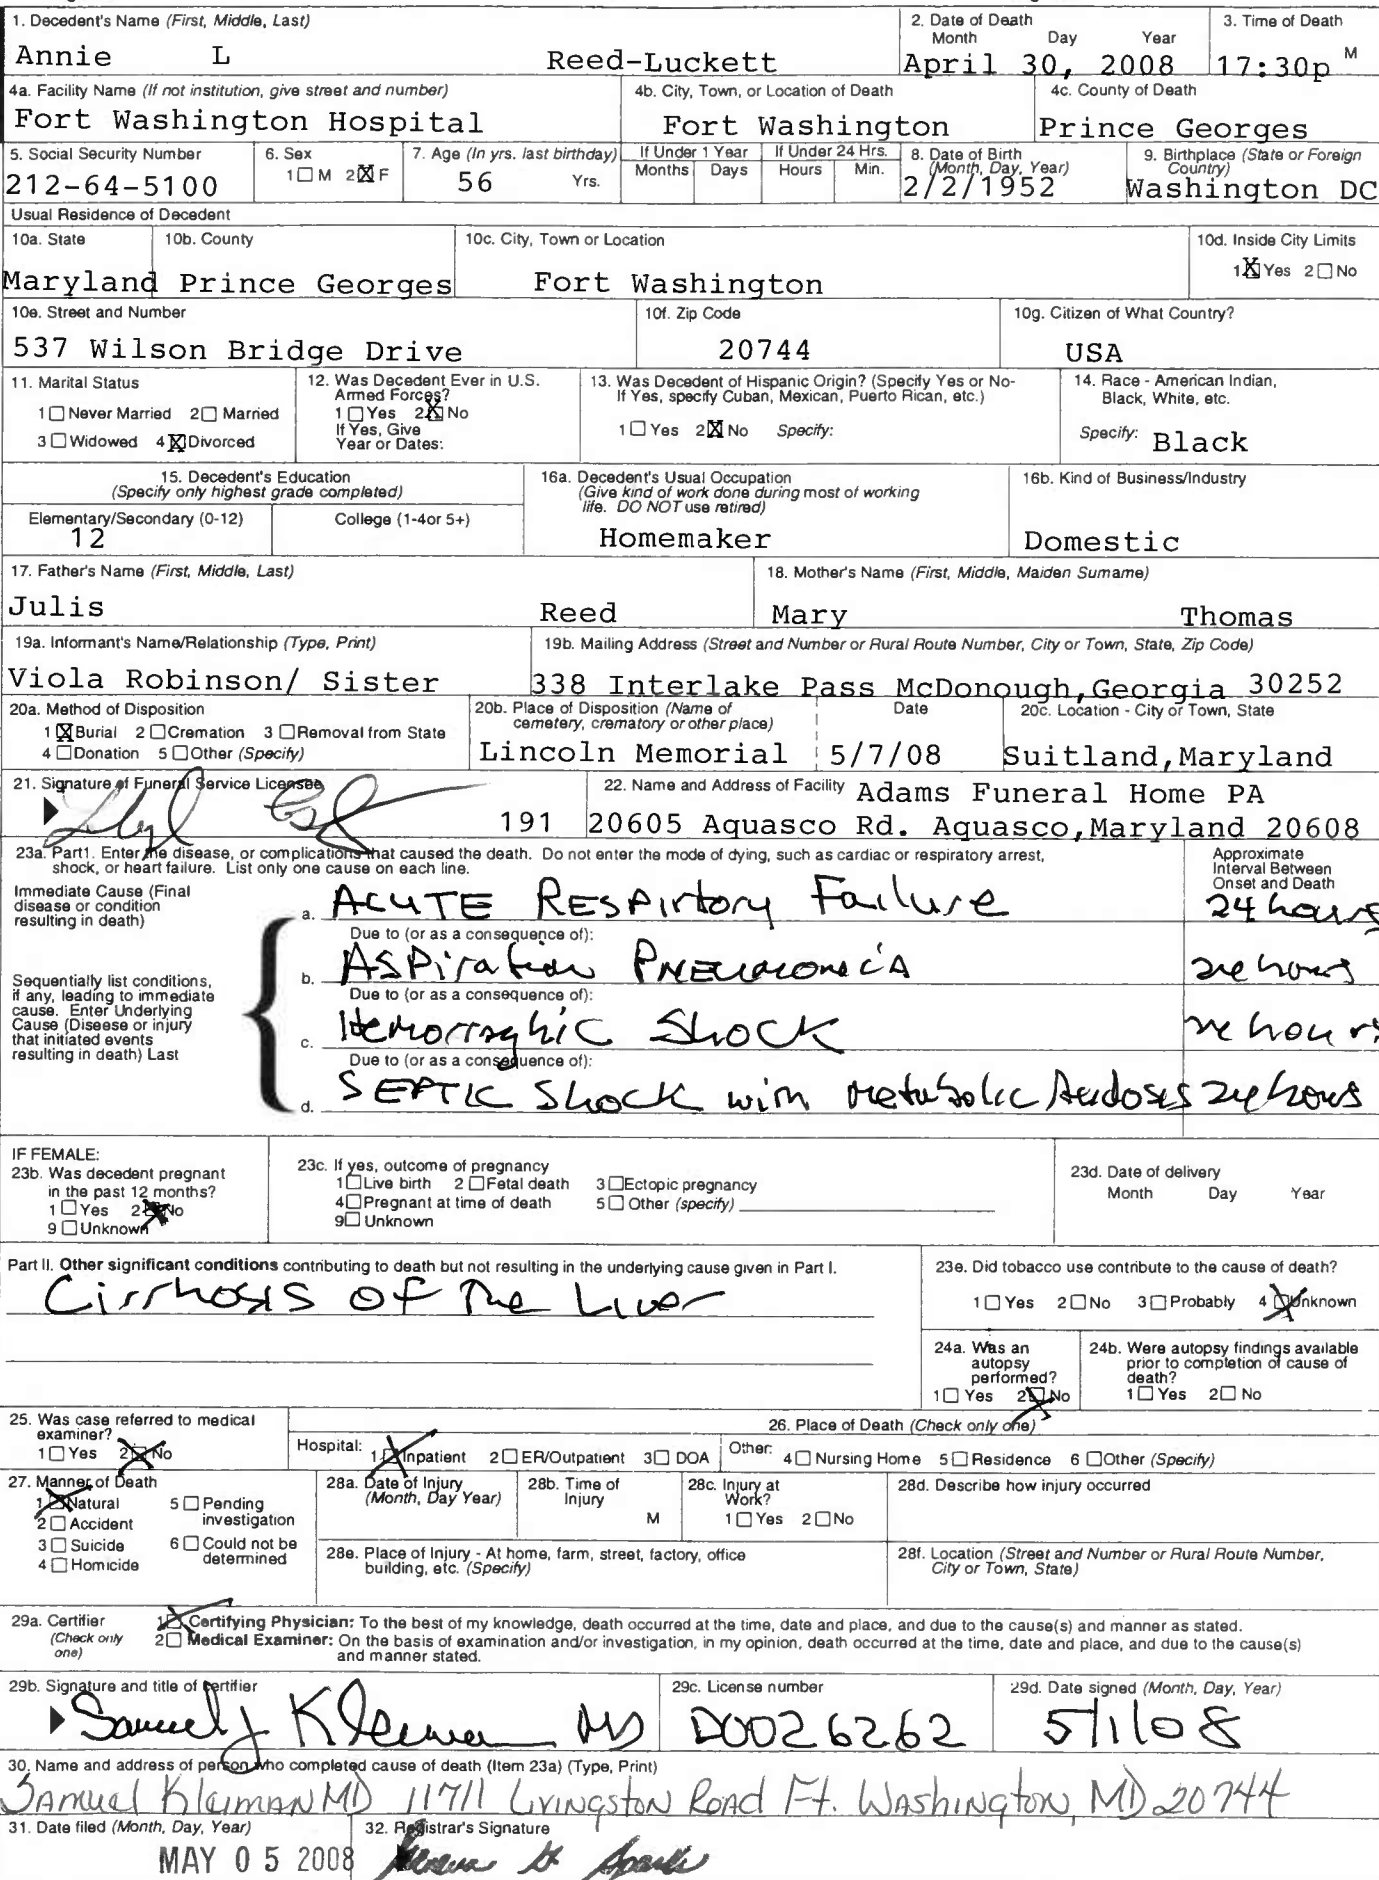 1. Decedent's Name (First, Middle, Last)
Annie L Reed-Luckett
2. Date of Death
Month Day Year
April 30, 2008
3. Time of Death
17:30p M
4a. Facility Name (If not institution, give street and number)
Fort Washington Hospital
4b. City, Town, or Location of Death
Fort Washington
4c. County of Death
Prince Georges
5. Social Security Number
212-64-5100
6. Sex
1☐M 2☒F
7. Age (In yrs. last birthday)
56 Yrs.
If Under 1 Year
Months Days
If Under 24 Hrs.
Hours Min.
8. Date of Birth
(Month, Day, Year)
2/2/1952
9. Birthplace (State or Foreign
Country)
Washington DC
Usual Residence of Decedent
10a. State
Maryland
10b. County
Prince Georges
10c. City, Town or Location
Fort Washington
10d. Inside City Limits
1☒Yes 2☐No
10e. Street and Number
537 Wilson Bridge Drive
10f. Zip Code
20744
10g. Citizen of What Country?
USA
11. Marital Status
1☐Never Married 2☐Married
3☐Widowed 4☒Divorced
12. Was Decedent Ever in U.S.
Armed Forces?
1☐Yes 2☒No
If Yes, Give
Year or Dates:
13. Was Decedent of Hispanic Origin? (Specify Yes or No-
If Yes, specify Cuban, Mexican, Puerto Rican, etc.)
1☐Yes 2☒No Specify:
14. Race - American Indian,
Black, White, etc.
Specify: Black
15. Decedent's Education
(Specify only highest grade completed)
Elementary/Secondary (0-12)
12
College (1-4or 5+)
16a. Decedent's Usual Occupation
(Give kind of work done during most of working
life. DO NOT use retired)
Homemaker
16b. Kind of Business/Industry
Domestic
17. Father's Name (First, Middle, Last)
Julis Reed
18. Mother's Name (First, Middle, Maiden Surname)
Mary Thomas
19a. Informant's Name/Relationship (Type, Print)
Viola Robinson/ Sister
19b. Mailing Address (Street and Number or Rural Route Number, City or Town, State, Zip Code)
338 Interlake Pass McDonough,Georgia 30252
20a. Method of Disposition
1☒Burial 2☐Cremation 3☐Removal from State
4☐Donation 5☐Other (Specify)
20b. Place of Disposition (Name of
cemetery, crematory or other place)
Lincoln Memorial
Date
5/7/08
20c. Location - City or Town, State
Suitland,Maryland
21. Signature of Funeral Service Licensee
191
22. Name and Address of Facility Adams Funeral Home PA
20605 Aquasco Rd. Aquasco,Maryland 20608
23a. Part1. Enter the disease, or complications that caused the death. Do not enter the mode of dying, such as cardiac or respiratory arrest,
shock, or heart failure. List only one cause on each line.
Approximate
Interval Between
Onset and Death
Immediate Cause (Final
disease or condition
resulting in death)
a. ACUTE RESPIrtory Failure 24 hours
Due to (or as a consequence of):
Sequentially list conditions,
if any, leading to immediate
cause. Enter Underlying
Cause (Disease or injury
that initiated events
resulting in death) Last
b. ASPiration PNEUmoniA 24 hours
Due to (or as a consequence of):
c. Hemorraghic Shock 24 hours
Due to (or as a consequence of):
d. SEPTIC Shock with metabolic Acidosis 24 hours
IF FEMALE:
23b. Was decedent pregnant
in the past 12 months?
1☐Yes 2☒No
9☐Unknown
23c. If yes, outcome of pregnancy
1☐Live birth 2☐Fetal death 3☐Ectopic pregnancy
4☐Pregnant at time of death 5☐Other (specify)
9☐Unknown
23d. Date of delivery
Month Day Year
Part II. Other significant conditions contributing to death but not resulting in the underlying cause given in Part I.
Cirrhosis of The Liver
23e. Did tobacco use contribute to the cause of death?
1☐Yes 2☐No 3☐Probably 4☒Unknown
24a. Was an
autopsy
performed?
1☐Yes 2☒No
24b. Were autopsy findings available
prior to completion of cause of
death?
1☐Yes 2☐No
25. Was case referred to medical
examiner?
1☐Yes 2☒No
26. Place of Death (Check only one)
Hospital: 1☒Inpatient 2☐ER/Outpatient 3☐DOA
Other: 4☐Nursing Home 5☐Residence 6☐Other (Specify)
27. Manner of Death
1☒Natural 5☐Pending
investigation
2☐Accident
3☐Suicide 6☐Could not be
determined
4☐Homicide
28a. Date of Injury
(Month, Day Year)
28b. Time of
Injury
M
28c. Injury at
Work?
1☐Yes 2☐No
28d. Describe how injury occurred
28e. Place of Injury - At home, farm, street, factory, office
building, etc. (Specify)
28f. Location (Street and Number or Rural Route Number,
City or Town, State)
29a. Certifier
(Check only
one)
1☒Certifying Physician: To the best of my knowledge, death occurred at the time, date and place, and due to the cause(s) and manner as stated.
2☐Medical Examiner: On the basis of examination and/or investigation, in my opinion, death occurred at the time, date and place, and due to the cause(s)
and manner stated.
29b. Signature and title of certifier
Samuel J Kleiman MD
29c. License number
D0026262
29d. Date signed (Month, Day, Year)
5/1/08
30. Name and address of person who completed cause of death (Item 23a) (Type, Print)
Samuel Kleiman MD 11711 Livingston Road Ft. Washington, MD 20744
31. Date filed (Month, Day, Year)
MAY 05 2008
32. Registrar's Signature